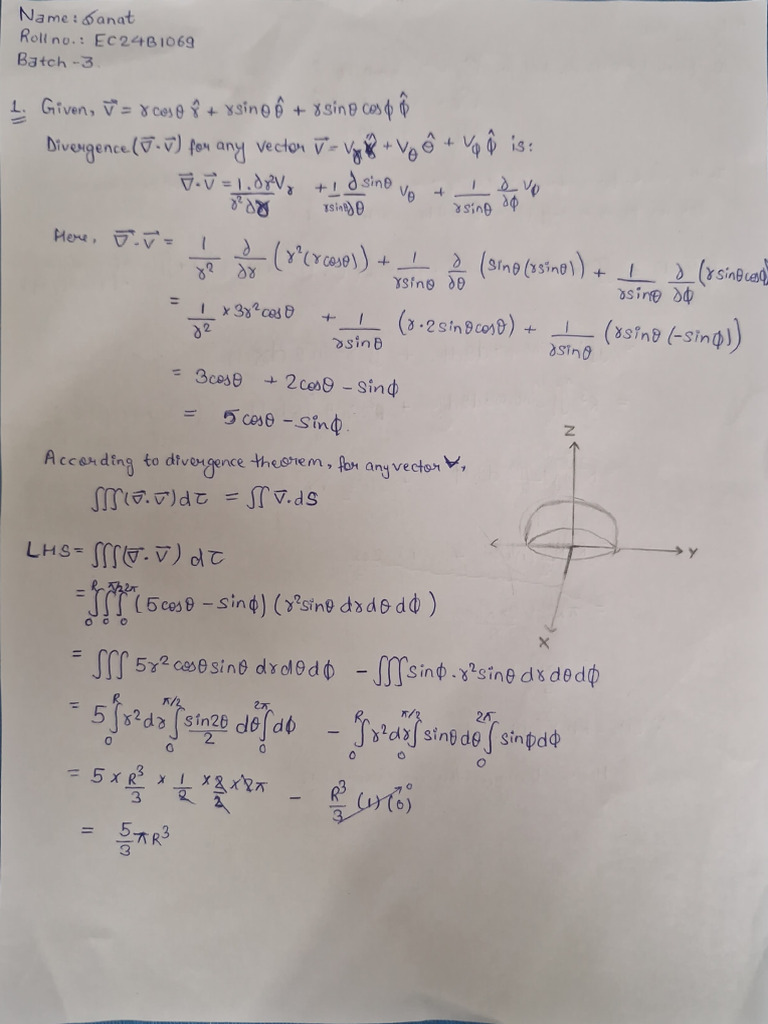 Name: Sanat
Roll no.: EC24B1069
Batch -3.
1. Given, V⃗ = r cosθ r̂ + r sinθ θ̂ + r sinθ cosϕ ϕ̂
Divergence (∇⃗·V⃗) for any vector V⃗ = Vr r̂ + Vθ θ̂ + Vϕ ϕ̂ is:
∇⃗·V⃗ = 1/r² ∂r²Vr/∂r + 1/(r sinθ) ∂/∂θ sinθ Vθ + 1/(r sinθ) ∂/∂ϕ Vϕ
Here, ∇⃗·V⃗ = 1/r² ∂/∂r (r²(r cosθ)) + 1/(r sinθ) ∂/∂θ (sinθ(r sinθ)) + 1/(r sinθ) ∂/∂ϕ (r sinθ cosϕ
= 1/r² × 3r² cosθ + 1/(r sinθ) (r·2 sinθ cosθ) + 1/(r sinθ) (r sinθ (-sinϕ))
= 3cosθ + 2cosθ - sinϕ
= 5 cosθ - sinϕ.
According to divergence theorem, for any vector V,
∭(∇⃗·V⃗)dτ = ∬ V⃗.dS
Z
Y
X
LHS = ∭(∇⃗·V⃗) dτ
= ∫₀^R ∫₀^π/2 ∫₀^2π (5 cosθ - sinϕ) (r² sinθ dr dθ dϕ)
= ∭ 5r² cosθ sinθ dr dθ dϕ - ∭ sinϕ · r² sinθ dr dθ dϕ
= 5 ∫₀^R r² dr ∫₀^π/2 sin2θ/2 dθ ∫₀^2π dϕ - ∫₀^R r² dr ∫₀^π/2 sinθ dθ ∫₀^2π sinϕ dϕ
= 5 × R³/3 × 1/2 × 2/2 × 2π - R³/3 (1) (0) 0
= 5/3 π R³